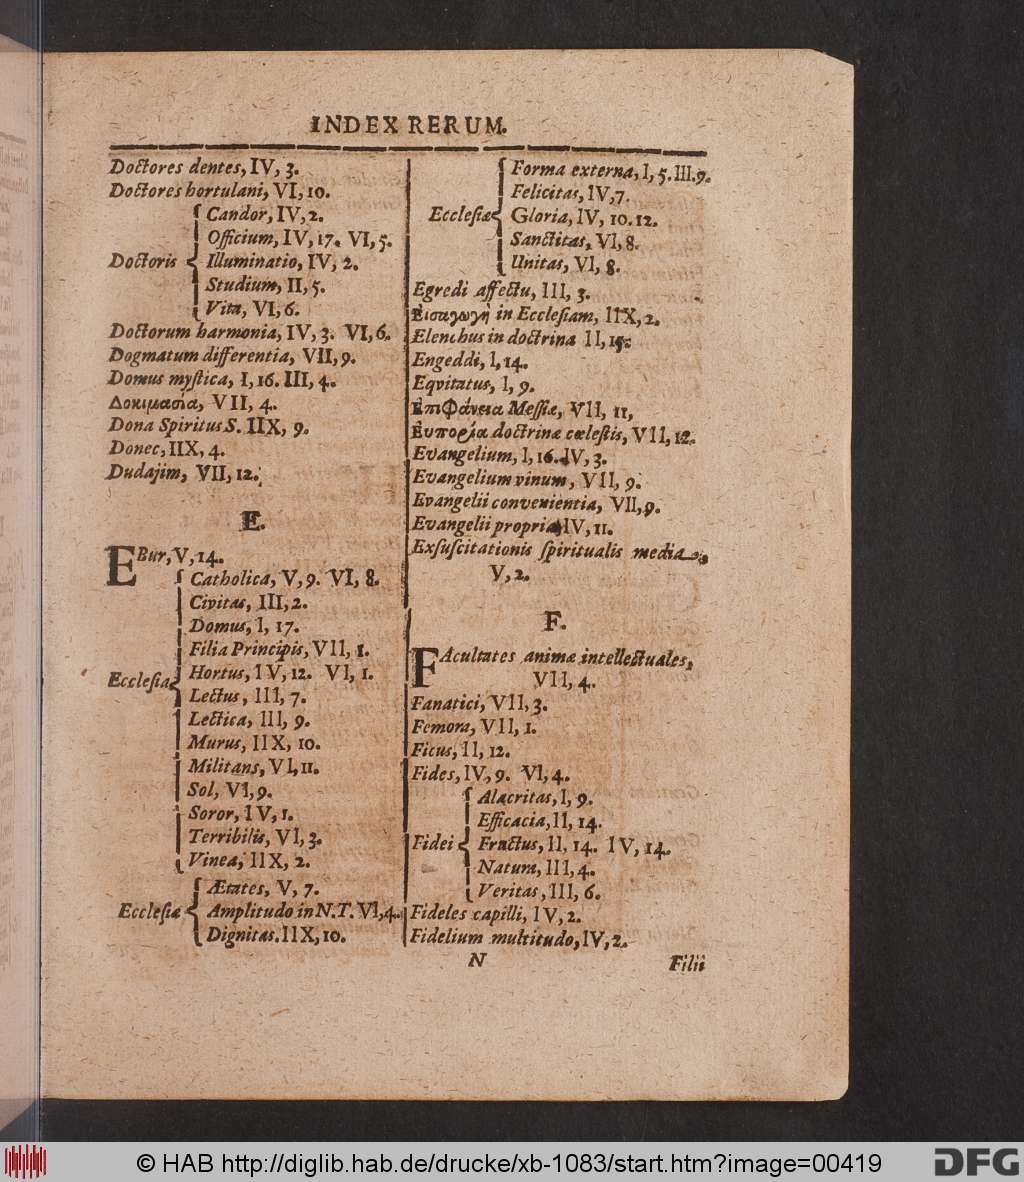 INDEX RERUM.
Doctores dentes, IV, 3.
Doctores hortulani, VI, 10.
Candor, IV, 2.
Officium, IV, 17. VI, 5.
Doctoris Illuminatio, IV, 2.
Studium, II, 5.
Vita, VI, 6.
Doctorum harmonia, IV, 3. VI, 6.
Dogmatum differentia, VII, 9.
Domus mystica, I, 16. III, 4.
Δοκιμασία, VII, 4.
Dona Spiritus S. IIX, 9.
Donec, IIX, 4.
Dudajim, VII, 12.
E.
EBur, V, 14.
Catholica, V, 9. VI, 8.
Civitas, III, 2.
Domus, I, 17.
Filia Principis, VII, 1.
Hortus, IV, 12. VI, 1.
Ecclesia
Lectus, III, 7.
Lectica, III, 9.
Murus, IIX, 10.
Militans, VI, 11.
Sol, VI, 9.
Soror, IV, 1.
Terribilis, VI, 3.
Vinea, IIX, 2.
Ætates, V, 7.
Ecclesiæ Amplitudo in N.T. VI, 4.
Dignitas. IIX, 10.
Forma externa, I, 5. III. 9.
Felicitas, IV, 7.
Ecclesiæ Gloria, IV, 10. 12.
Sanctitas, VI, 8.
Unitas, VI, 8.
Egredi affectu, III, 3.
Εἰσαγωγὴ in Ecclesiam, IIX, 2.
Elenchus in doctrina II, 15.
Engeddi, I, 14.
Eqvitatus, I, 9.
Ἐπιφάνεια Messiæ, VII, 11,
Ἐυπορία doctrinæ cœlestis, VII, 12.
Evangelium, I, 16. IV, 3.
Evangelium vinum, VII, 9.
Evangelii convenientia, VII, 9.
Evangelii propria, IV, 11.
Exsuscitationis spiritualis media
V, 2.
F.
FAcultates animæ intellectuales,
VII, 4.
Fanatici, VII, 3.
Femora, VII, 1.
Ficus, II, 12.
Fides, IV, 9. VI, 4.
Alacritas, I, 9.
Efficacia, II, 14.
Fidei Fructus, II, 14. IV, 14.
Natura, III, 4.
Veritas, III, 6.
Fideles capilli, IV, 2.
Fidelium multitudo, IV, 2.
N
Filii
© HAB http://diglib.hab.de/drucke/xb-1083/start.htm?image=00419
DFG